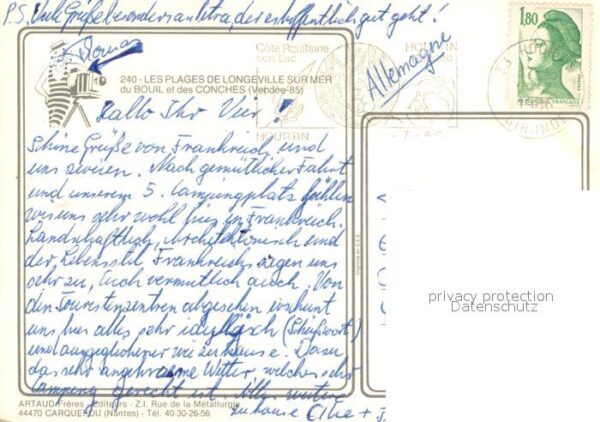 P.S. Viele Grüße besonders an Petra, der es hoffentlich gut geht!
Thomas
Côte Aquitaine
son Lac
HOURTIN
HOURTIN
Allemagne
1,80
240 - LES PLAGES DE LONGEVILLE SUR MER
du BOUIL et des CONCHES (Vendée-85)
Hallo Ihr Vier!
Schöne Grüße von Frankreich und
uns zweien. Nach gemütlicher Fahrt
und unserem 5. Campingplatz fühlen
wir uns sehr wohl hier in Frankreich.
Landschaftlich, Architektonisch und
der Lebensstil Frankreichs sagen uns
sehr zu, Euch vermutlich auch. Von
den Touristenzentren abgesehen erscheint
uns hier alles sehr idyllisch (Schußwort)
und ausgeglichener wie zuhause. Dazu
das sehr angenehme Wetter, welches sehr
Camping gerecht ist. Alles weitere
zuhause
privacy protection
Datenschutz
ARTAUD Frères, éditeurs - Z.I. Rue de la Métallurgie
44470 CARQUEFOU (Nantes) - Tél. 40-30-26-56